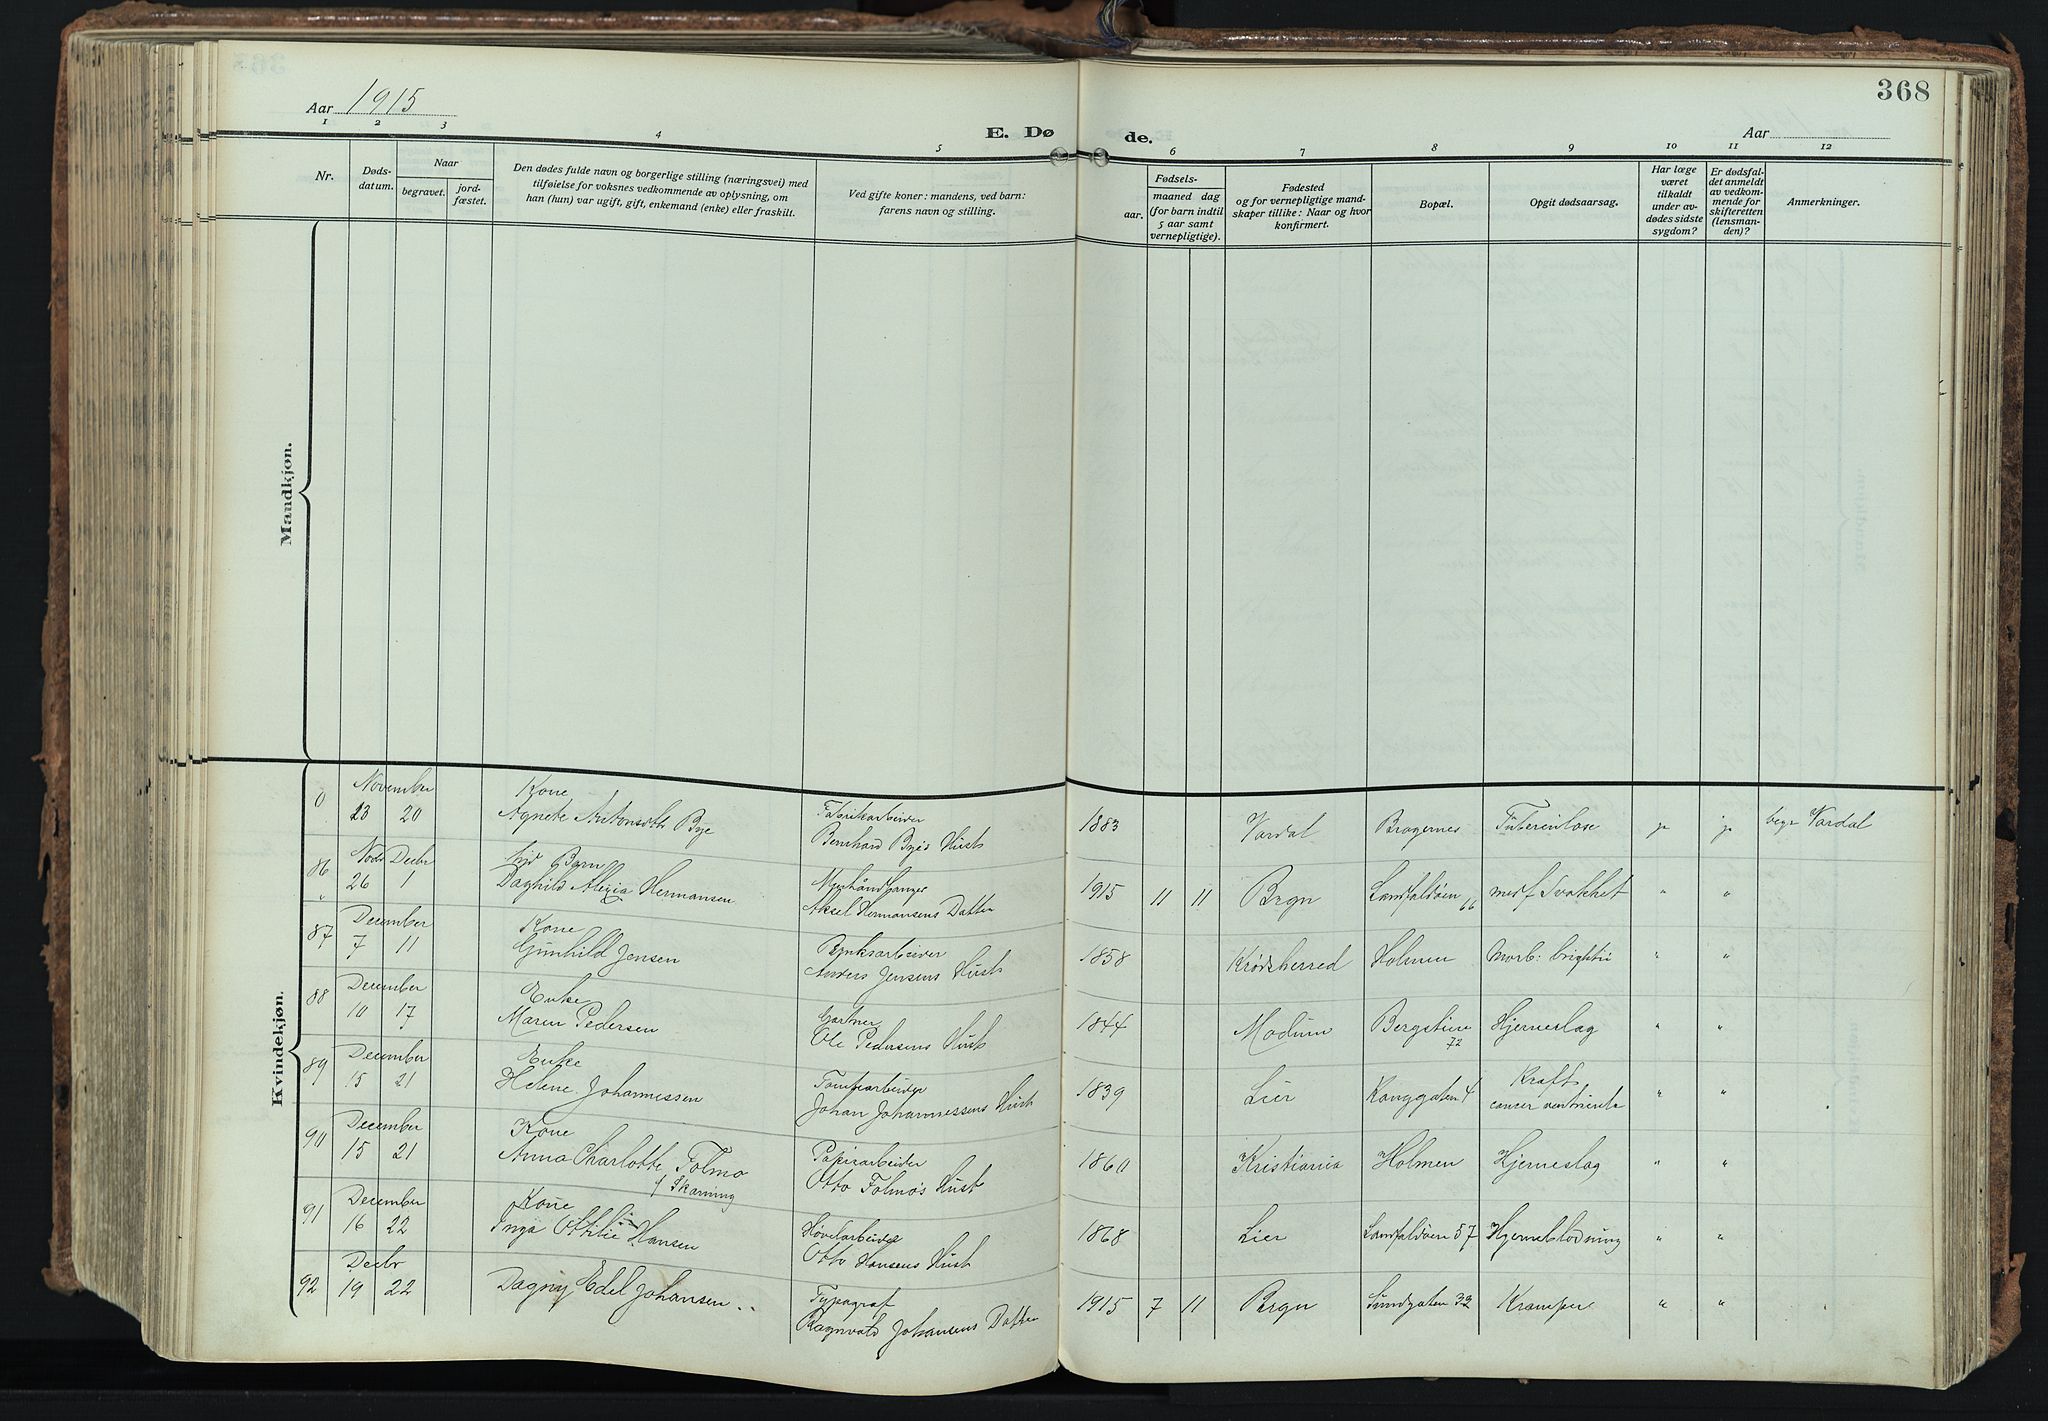 368
Aar 1915
E. Dø de.
Aar
1 2 3 4 5 6 7 8 9 10 11 12
Nr.
Dødsdatum.
Naar
begravet.
jordfæstet.
Den dødes fulde navn og borgerlige stilling (næringsvei) med
tilføielse for voksnes vedkommende av oplysning, om
han (hun) var ugift, gift, enkemand (enke) eller fraskilt.
Ved gifte koner: mandens, ved barn:
farens navn og stilling.
Fødsels-
aar.
maaned dag
(for barn indtil
5 aar samt
vernepligtige).
Fødested
og for vernepligtige mand-
skaper tillike: Naar og hvor
konfirmert.
Bopæl.
Opgit dødsaarsag.
Har læge
været
tilkaldt
under av-
dødes sidste
sygdom?
Er dødsfal-
det anmeldt
av vedkom-
mende for
skifteretten
(lensman-
den)?
Anmerkninger.
Mandkjøn.
Kvindekjøn.
0 November Kone Fabrikarbeider
23 20 Agnete Antonsdtr Bye Bernhard Byes Hust 1883 Vardal Bragernes Tuberculose ja ja begr Vardal
86 Novb Decbr Barn
26 1 Daghild Hermansen Aksel Hermansens Datter 1915 11 11 Brgn Landfaldøen 66 medf Svakhet " "
87 December Kone Bruksarbeider
7 11 Gunhild Jensen Anders Jensens Hust 1858 Krødsherred Holmen Morb: brightii " "
88 December Enke Gartner
10 17 Maren Pedersen Ole Pedersens Hust 1844 Modum Bergstien 72 Hjerneslag " "
89 December Enke Tomtearbeider
15 21 Helene Johannessen Johan Johannessens Hust 1839 Lier Konggaten 4 Kræft cancer ventriculi " "
90 December Kone Papirarbeider
15 21 Anna Charlotte Folmo Otto Folmo's Hust 1860 Kristiania Holmen Hjerneslag " "
f Skaning
91 December Kone Høvelarbeider
16 22 Inga Ottilie Hansen Otto Hansens Hust 1868 Lier Landfaldøen 57 Hjerneblødning " "
92 Decbr Typograf
19 22 Dagny Edel Johansen Ragnvald Johansens Datter 1915 7 11 Brgn Sundgaten 32 Kramper " "